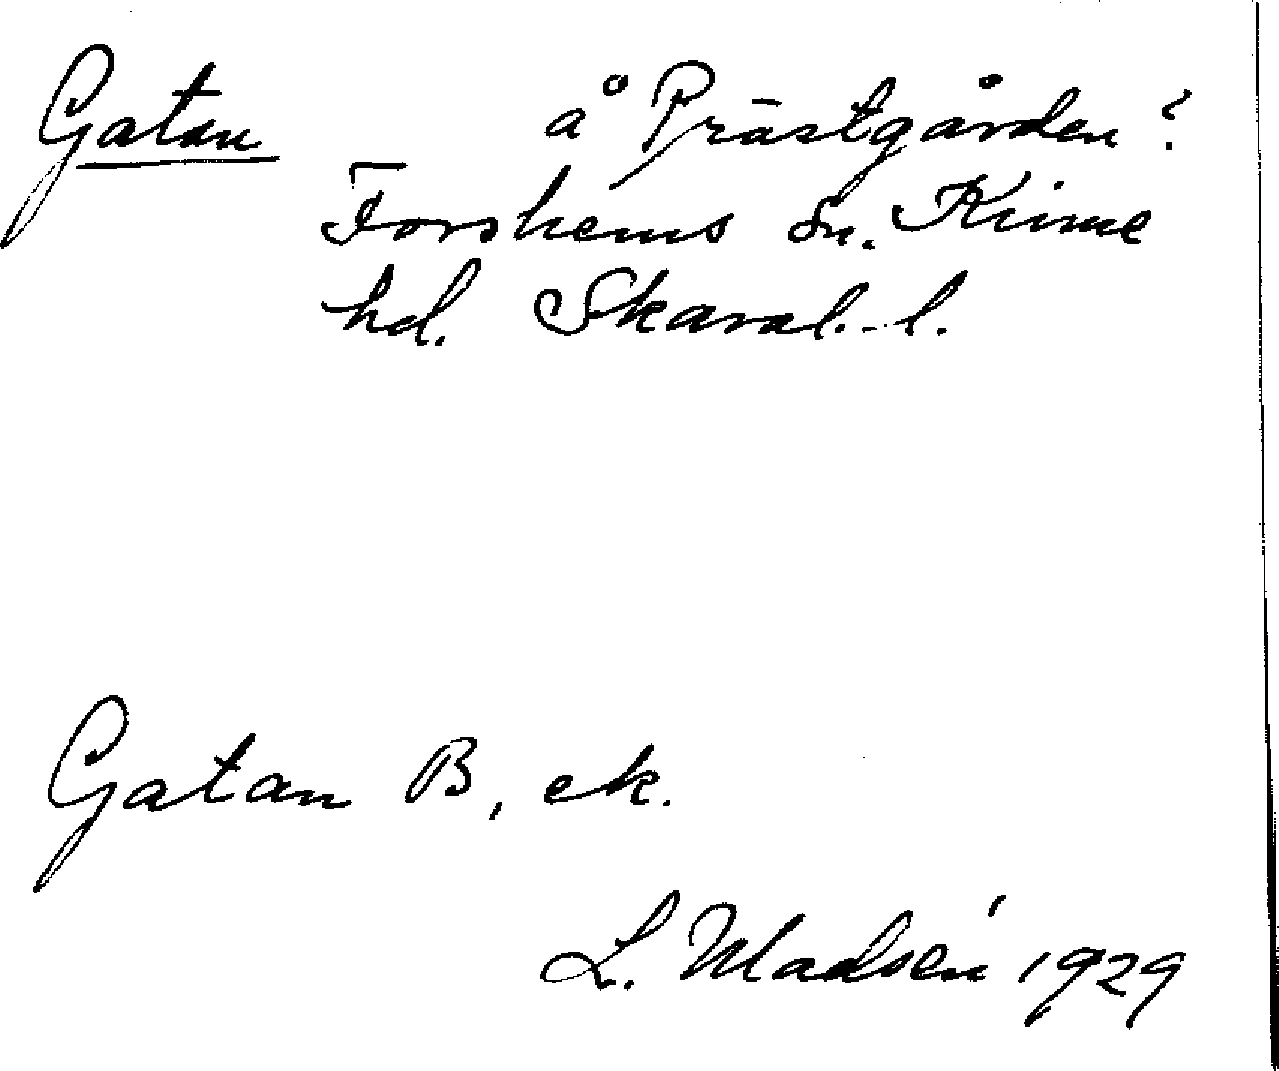 Gatan å Prästgården?
Forshems sn. Kinne
hd. Skarab. l.
Gatan B, ek.
L. Madsén 1929